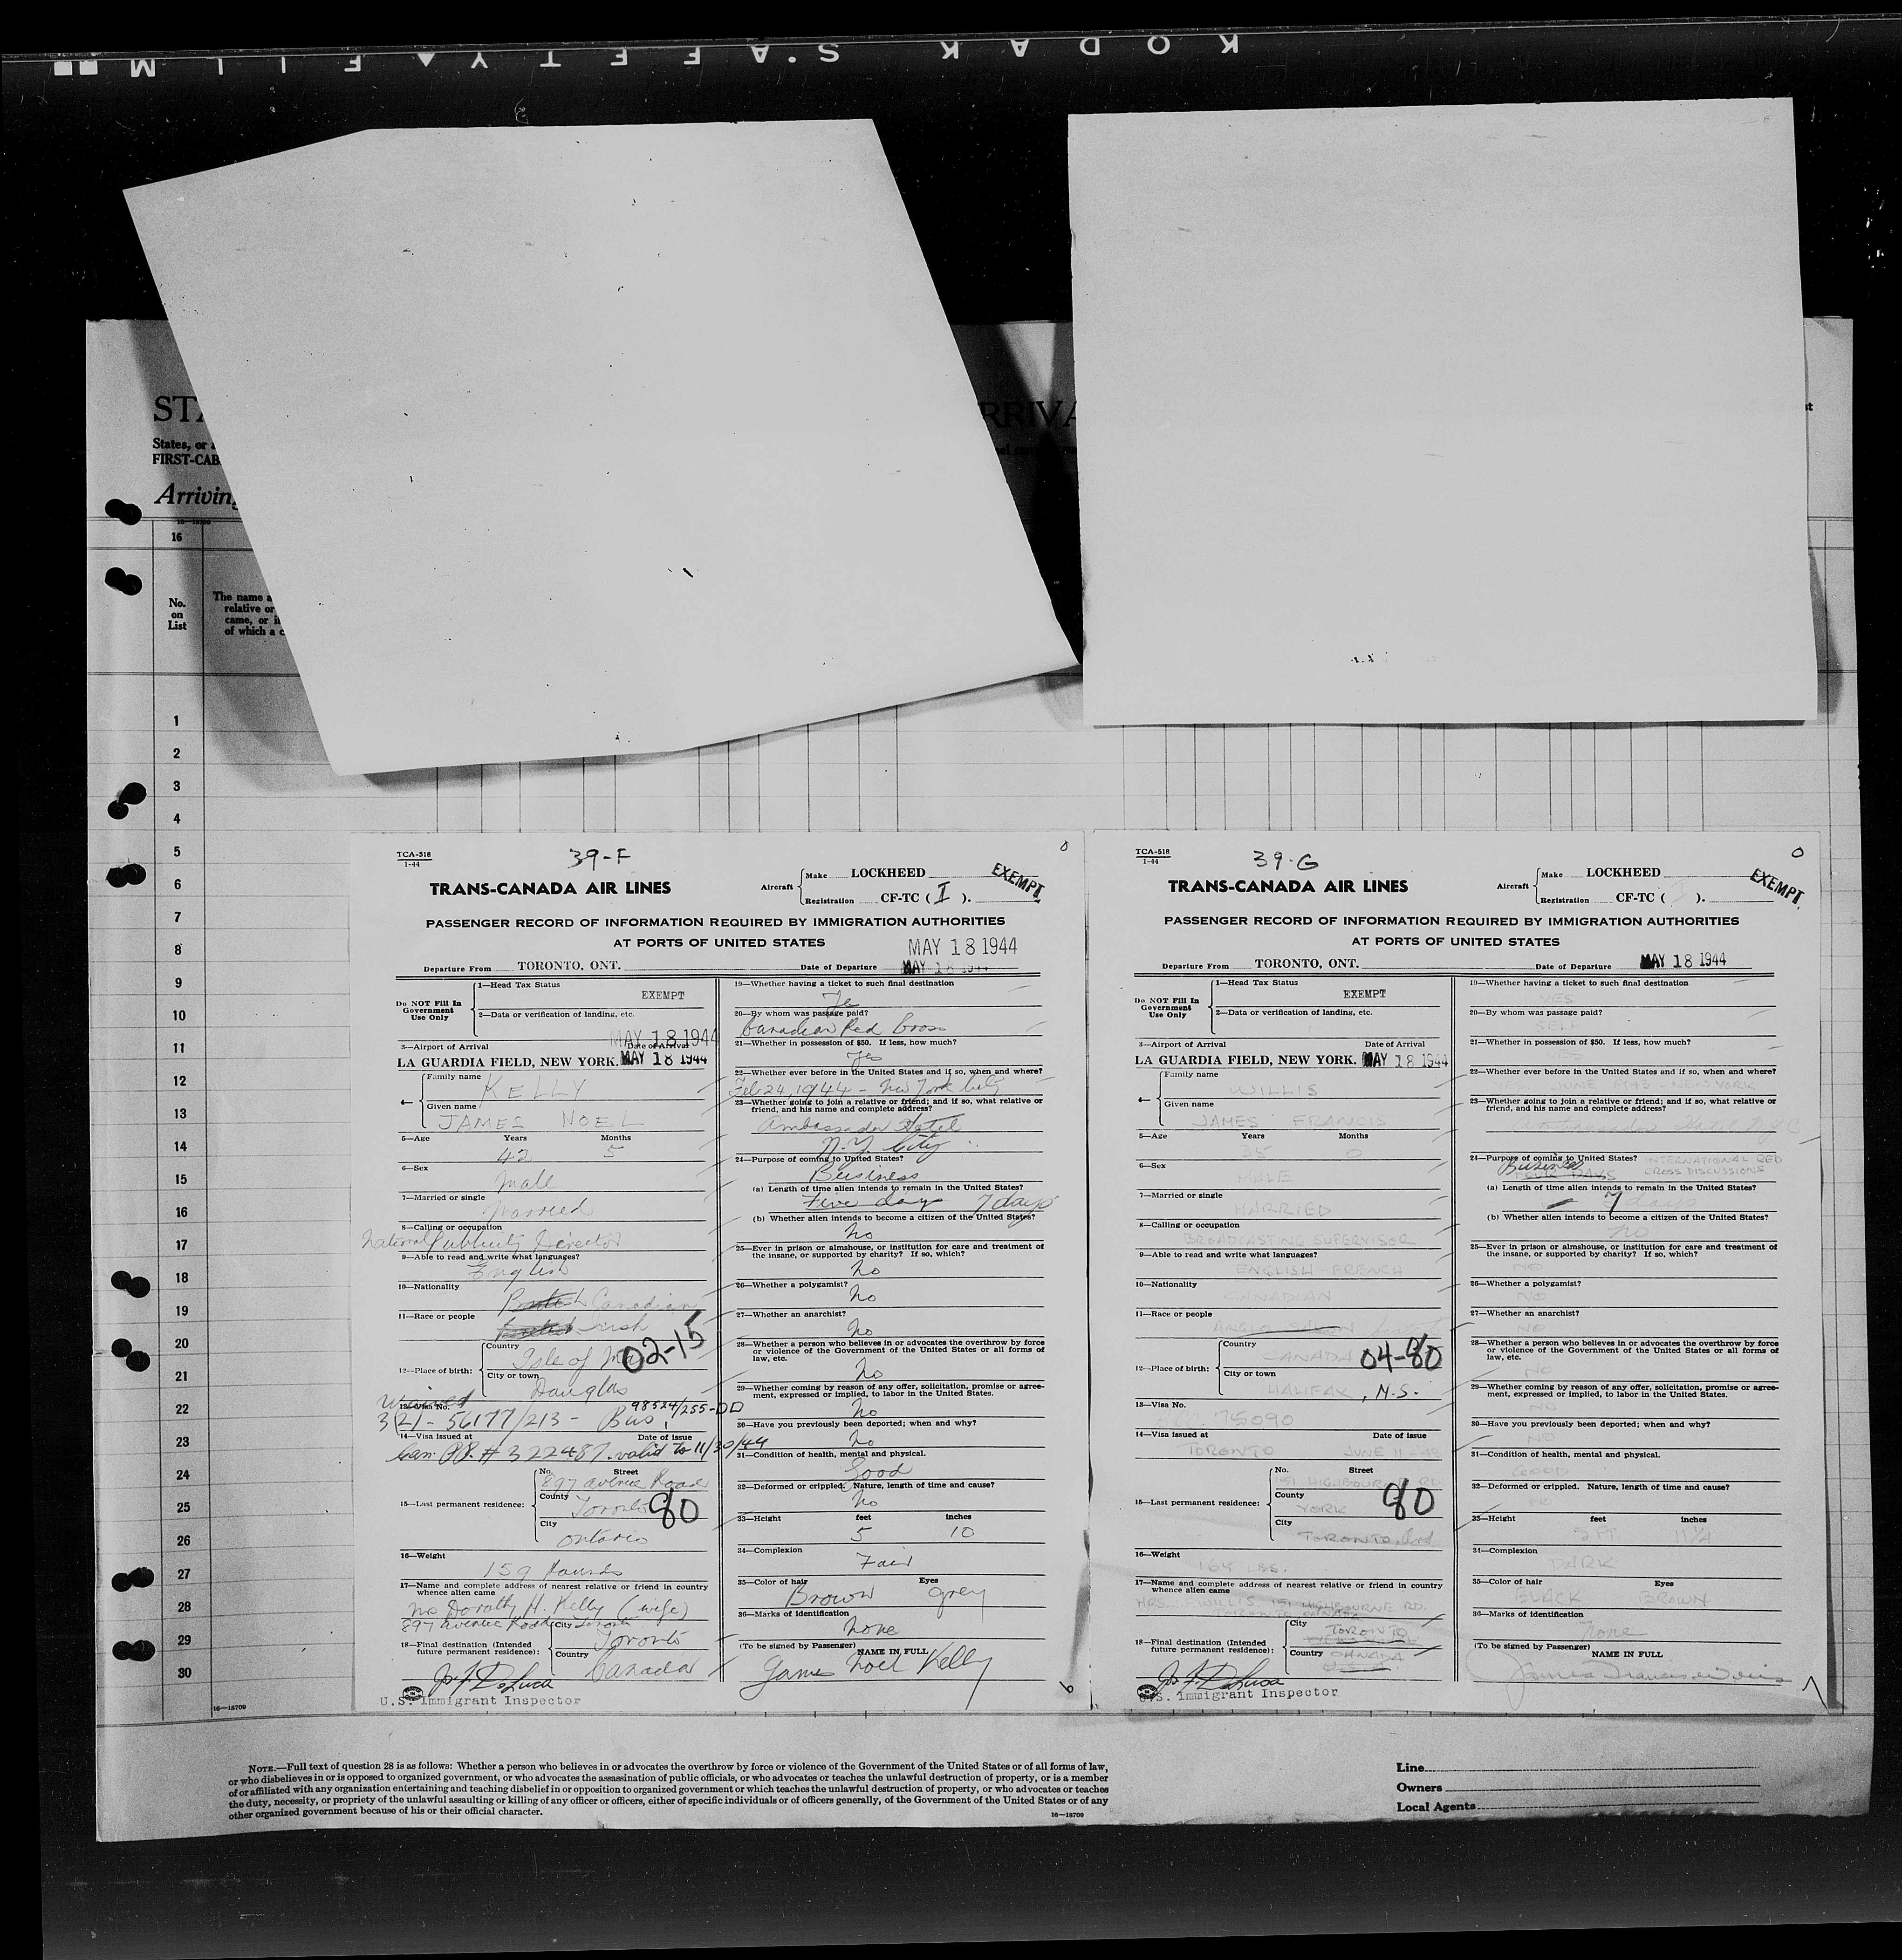 KODAK SAFETY FILM
STA
RRIVA
States, or a
FIRST-CAB
Arriving
16—18709
16
No.
on
List
The name a
relative or
came, or i
of which a c
1
2
3
4
5
6
7
8
9
10
11
12
13
14
15
16
17
18
19
20
21
22
23
24
25
26
27
28
29
30
16—18709
TCA-518
1-44
39-F
TRANS-CANADA AIR LINES
Aircraft
Make LOCKHEED
Registration CF-TC ( I ).
EXEMPT
PASSENGER RECORD OF INFORMATION REQUIRED BY IMMIGRATION AUTHORITIES
AT PORTS OF UNITED STATES
MAY 18 1944
Departure From TORONTO, ONT. Date of Departure MAY 18 1944
Do NOT Fill In
Government
Use Only
1—Head Tax Status
EXEMPT
2—Data or verification of landing, etc.
MAY 18 1944
3—Airport of Arrival Date of Arrival
LA GUARDIA FIELD, NEW YORK. MAY 18 1944
Family name KELLY
Given name
JAMES NOEL
5—Age Years Months
42 5
6—Sex
Male
7—Married or single
Married
8—Calling or occupation
National Publicity Director
9—Able to read and write what languages?
English
10—Nationality
British Canadian
11—Race or people
Irish
12—Place of birth:
Country
Isle of Man 02-15
City or town
Douglas
Waived
13—Visa No. 98524/255-DD
3(2) - 56177/213 - Bus.
14—Visa issued at Date of issue
Can. PP. # 322487. valid to 11/30/44
15—Last permanent residence:
No. Street
897 Avenue Road
County
Toronto 80
City
Ontario
16—Weight
159 Pounds
17—Name and complete address of nearest relative or friend in country
whence alien came
Mrs Dorothy H. Kelly (wife)
897 Avenue Road Toronto
18—Final destination (Intended
future permanent residence):
City
Toronto
Country
Canada
U.S. Immigrant Inspector
19—Whether having a ticket to such final destination
20—By whom was passage paid?
Canadian Red Cross
21—Whether in possession of $50. If less, how much?
Yes
22—Whether ever before in the United States and if so, when and where?
Feb 24, 1944 - New York City
23—Whether going to join a relative or friend; and if so, what relative or
friend, and his name and complete address?
Ambassador Hotel
N.Y. City
24—Purpose of coming to United States?
Business
(a) Length of time alien intends to remain in the United States?
Five days 7 days
(b) Whether alien intends to become a citizen of the United States?
No
25—Ever in prison or almshouse, or institution for care and treatment of
the insane, or supported by charity? If so, which?
No
26—Whether a polygamist?
No
27—Whether an anarchist?
No
28—Whether a person who believes in or advocates the overthrow by force
or violence of the Government of the United States or all forms of
law, etc.
No
29—Whether coming by reason of any offer, solicitation, promise or agree-
ment, expressed or implied, to labor in the United States.
No
30—Have you previously been deported; when and why?
No
31—Condition of health, mental and physical.
Good
32—Deformed or crippled. Nature, length of time and cause?
No
33—Height feet inches
5 10
34—Complexion
Fair
35—Color of hair Eyes
Brown Grey
36—Marks of identification
None
(To be signed by Passenger) NAME IN FULL
James Noel Kelly
TCA-518
1-44
39-G
TRANS-CANADA AIR LINES
Aircraft
Make LOCKHEED
Registration CF-TC ( ).
EXEMPT
PASSENGER RECORD OF INFORMATION REQUIRED BY IMMIGRATION AUTHORITIES
AT PORTS OF UNITED STATES
Departure From TORONTO, ONT. Date of Departure MAY 18 1944
Do NOT Fill In
Government
Use Only
1—Head Tax Status
EXEMPT
2—Data or verification of landing, etc.
3—Airport of Arrival Date of Arrival
LA GUARDIA FIELD, NEW YORK. MAY 18 1944
Family name
WILLIS
Given name
JAMES FRANCIS
5—Age Years Months
35 0
6—Sex
MALE
7—Married or single
MARRIED
8—Calling or occupation
BROADCASTING SUPERVISOR
9—Able to read and write what languages?
ENGLISH - FRENCH
10—Nationality
CANADIAN
11—Race or people
ANGLO SAXON
12—Place of birth:
Country
CANADA 04-80
City or town
HALIFAX, N.S.
13—Visa No.
75090
14—Visa issued at Date of issue
TORONTO JUNE 11-43
15—Last permanent residence:
No. Street
191 HIGHBOURNE RD
County
YORK 80
City
TORONTO
16—Weight
164 LBS.
17—Name and complete address of nearest relative or friend in country
whence alien came
MRS. J.F. WILLIS 191 HIGHBOURNE RD.
TORONTO CANADA
18—Final destination (Intended
future permanent residence):
City
TORONTO
Country CANADA
U.S.A.
U.S. Immigrant Inspector
19—Whether having a ticket to such final destination
YES
20—By whom was passage paid?
SELF
21—Whether in possession of $50. If less, how much?
YES
22—Whether ever before in the United States and if so, when and where?
JUNE 1943 - NEW YORK
23—Whether going to join a relative or friend; and if so, what relative or
friend, and his name and complete address?
Ambassador Hotel NYC
24—Purpose of coming to United States? INTERNATIONAL RED
Business CROSS DISCUSSIONS
(a) Length of time alien intends to remain in the United States?
7 days
(b) Whether alien intends to become a citizen of the United States?
NO
25—Ever in prison or almshouse, or institution for care and treatment of
the insane, or supported by charity? If so, which?
NO
26—Whether a polygamist?
NO
27—Whether an anarchist?
NO
28—Whether a person who believes in or advocates the overthrow by force
or violence of the Government of the United States or all forms of
law, etc.
NO
29—Whether coming by reason of any offer, solicitation, promise or agree-
ment, expressed or implied, to labor in the United States.
NO
30—Have you previously been deported; when and why?
NO
31—Condition of health, mental and physical.
GOOD
32—Deformed or crippled. Nature, length of time and cause?
NO
33—Height feet inches
5 FT. 1 1/4
34—Complexion
DARK
35—Color of hair Eyes
BLACK BROWN
36—Marks of identification
None
(To be signed by Passenger) NAME IN FULL
James Francis Willis
NOTE.—Full text of question 28 is as follows: Whether a person who believes in or advocates the overthrow by force or violence of the Government of the United States or of all forms of law,
or who disbelieves in or is opposed to organized government, or who advocates the assassination of public officials, or who advocates or teaches the unlawful destruction of property, or is a member
of or affiliated with any organization entertaining and teaching disbelief in or opposition to organized government or which teaches the unlawful destruction of property, or who advocates or teaches
the duty, necessity, or propriety of the unlawful assaulting or killing of any officer or officers, either of specific individuals or of officers generally, of the Government of the United States or of any
other organized government because of his or their official character.
16—18709
Line
Owners
Local Agents